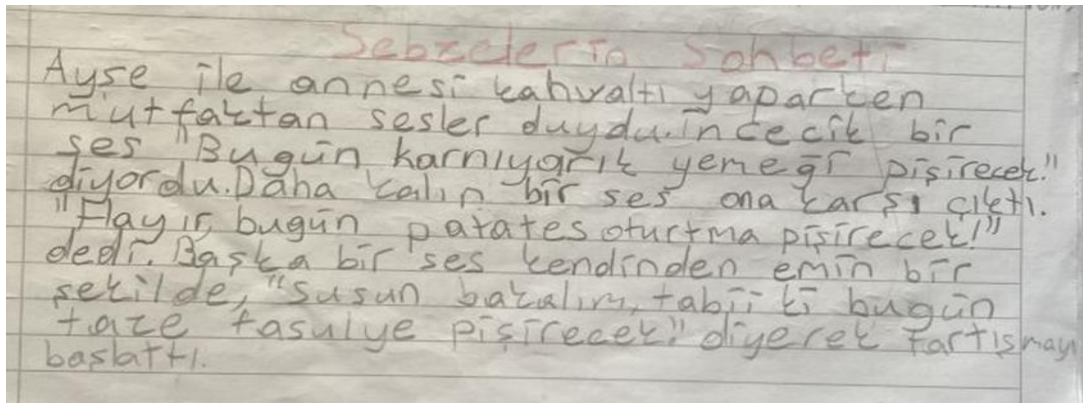 Sebzelerin Sohbeti
Ayse ile annesi kahvaltı yaparken
mutfaktan sesler duydu.İncecik bir
ses "Bugün karnıyarık yemeği pişirecek."
diyordu.Daha kalın bir ses ona karşı çıktı.
"Hayır, bugün patates oturtma pişirecek!"
dedi. Başka bir ses kendinden emin bir
şekilde, "Susun bakalım, tabii ki bugün
taze fasulye pişirecek" diyerek tartışmayı
baslattı.